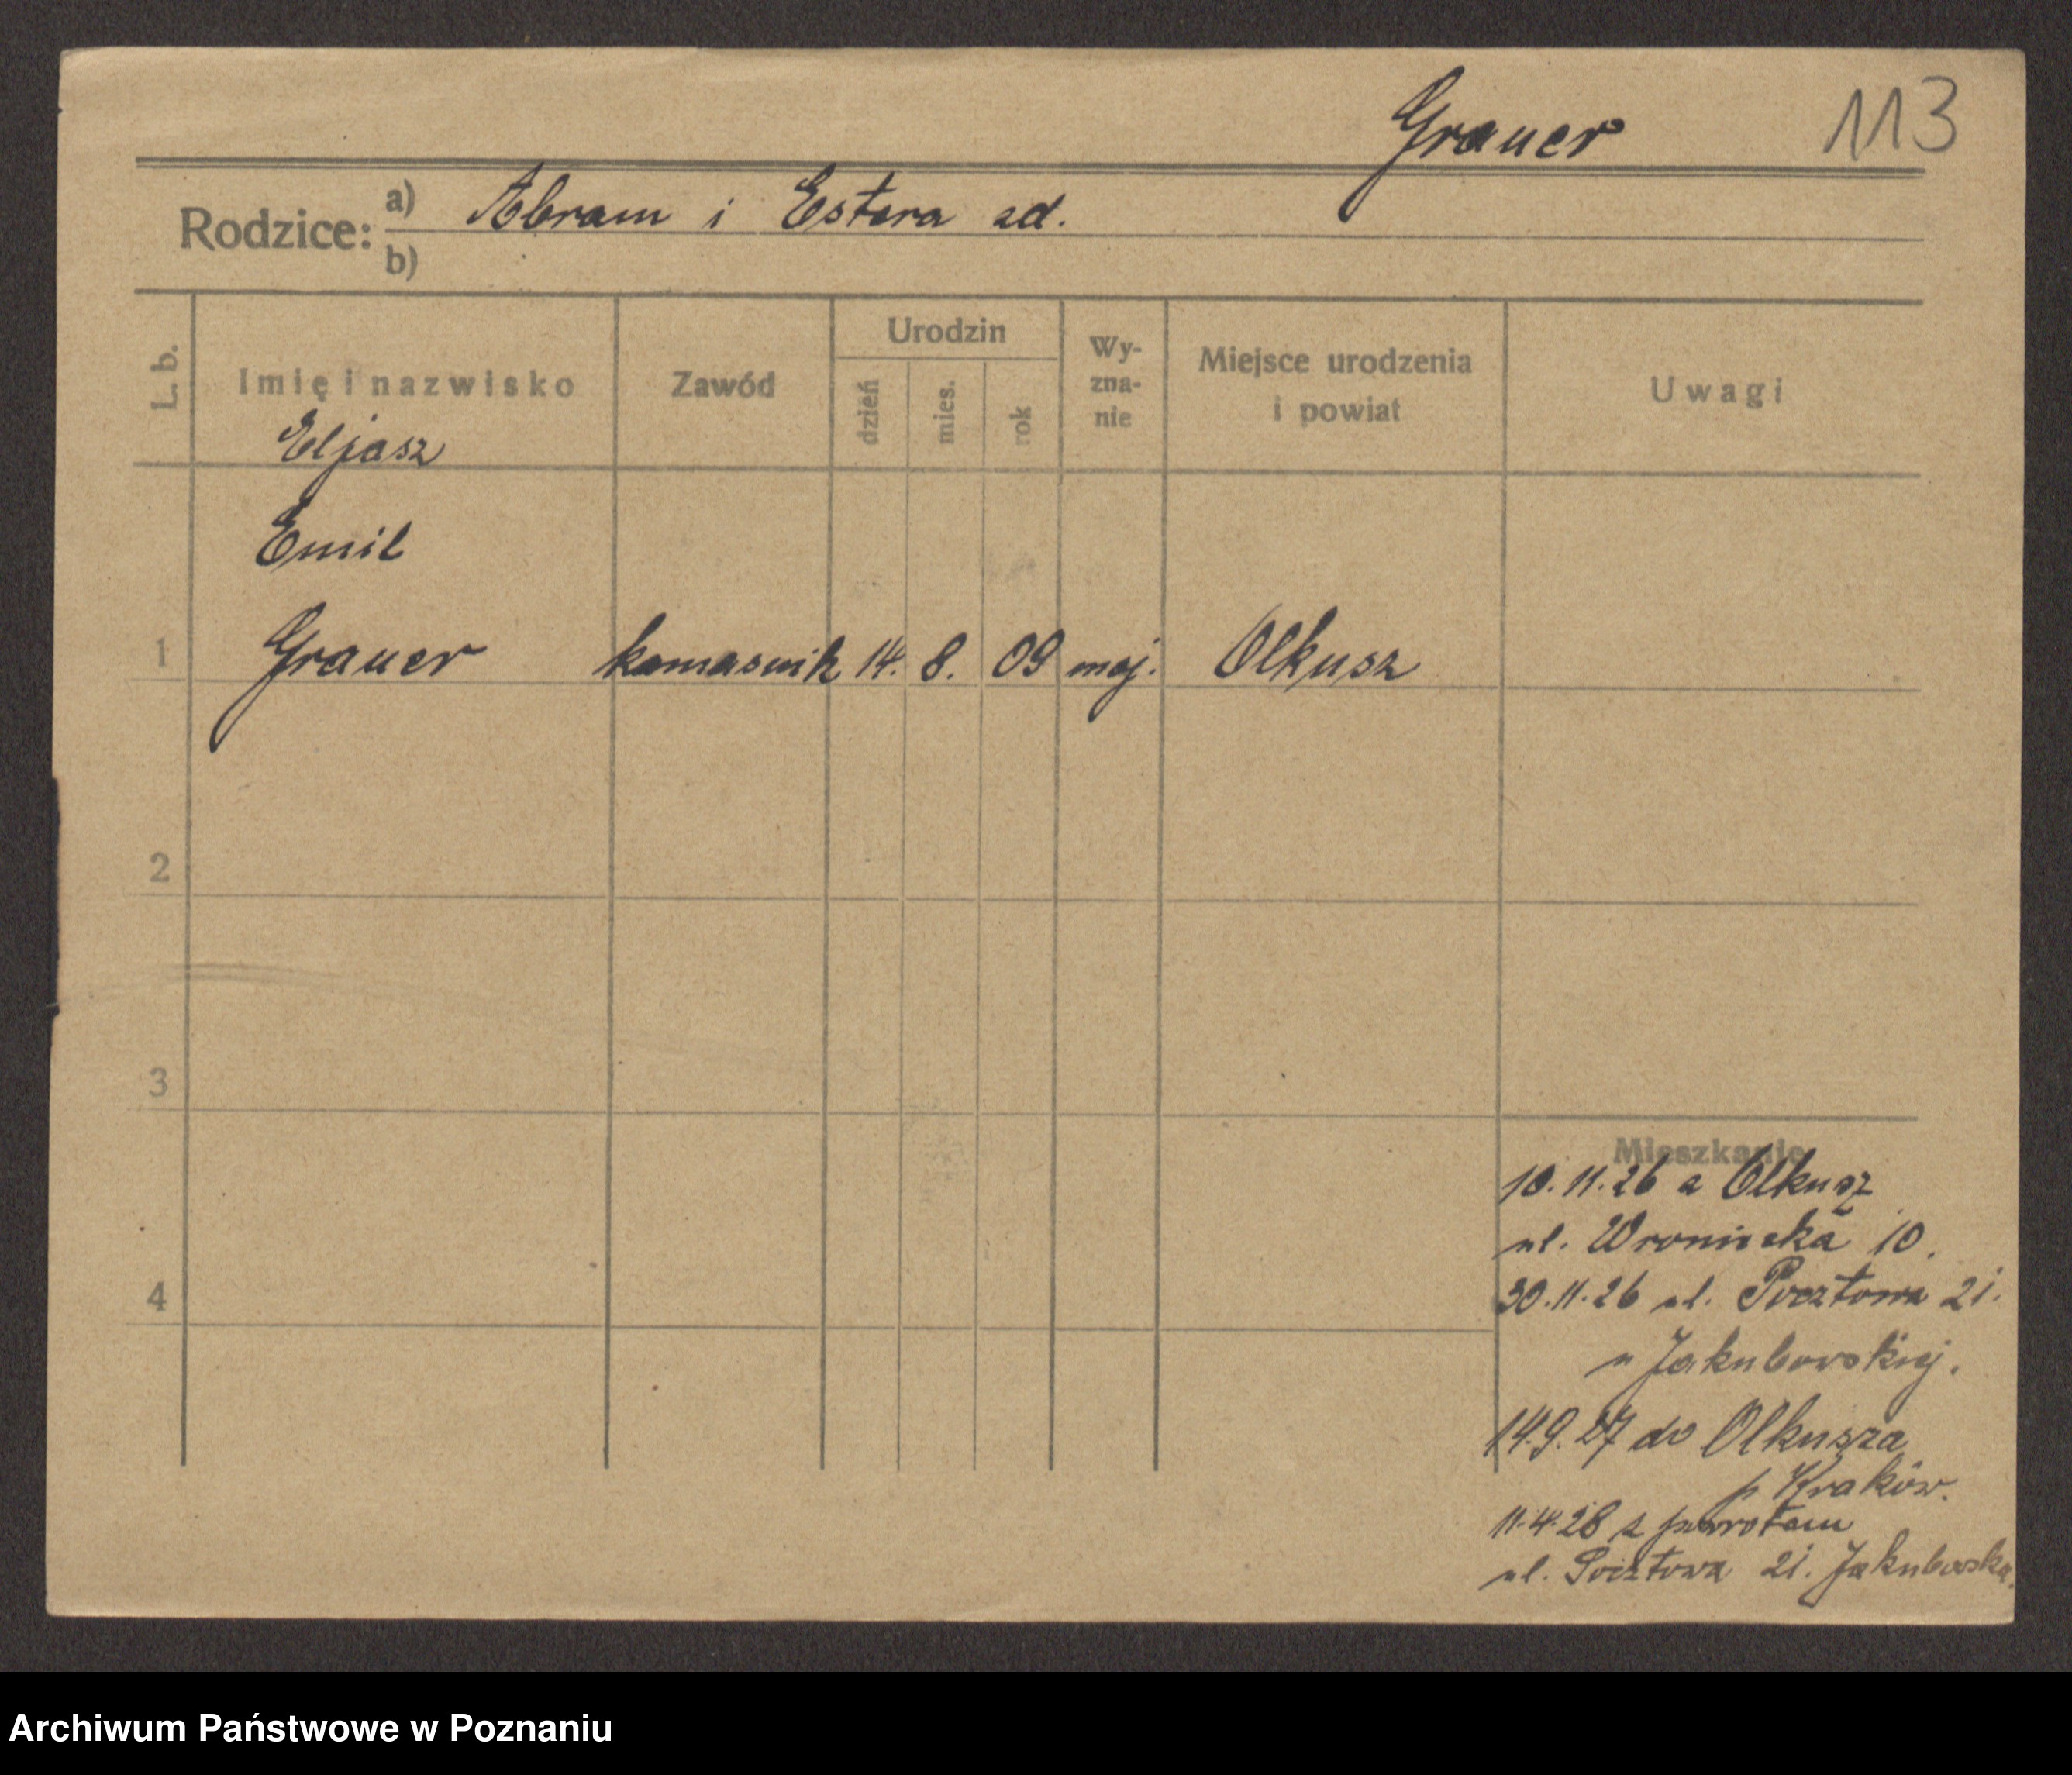 Grauer 113
Rodzice: a) Abram i Estera zd.
b)
L. b. Imię i nazwisko Zawód Urodzin dzień mies. rok Wyznanie Miejsce urodzenia i powiat Uwagi
Eljasz
Emil
1 Grauer kamasznik 14. 8. 09 moj. Olkusz
2
3
Mieszkanie
10.11.26 z Olkusz
ul. Wroniecka 10.
4
30.11.26 ul. Pocztowa 21.
u Jakubowskiej.
14.9.27 do Olkusza
p Kraków.
11.4.28 z powrotem
ul. Pocztowa 21. Jakubowska.
Archiwum Państwowe w Poznaniu